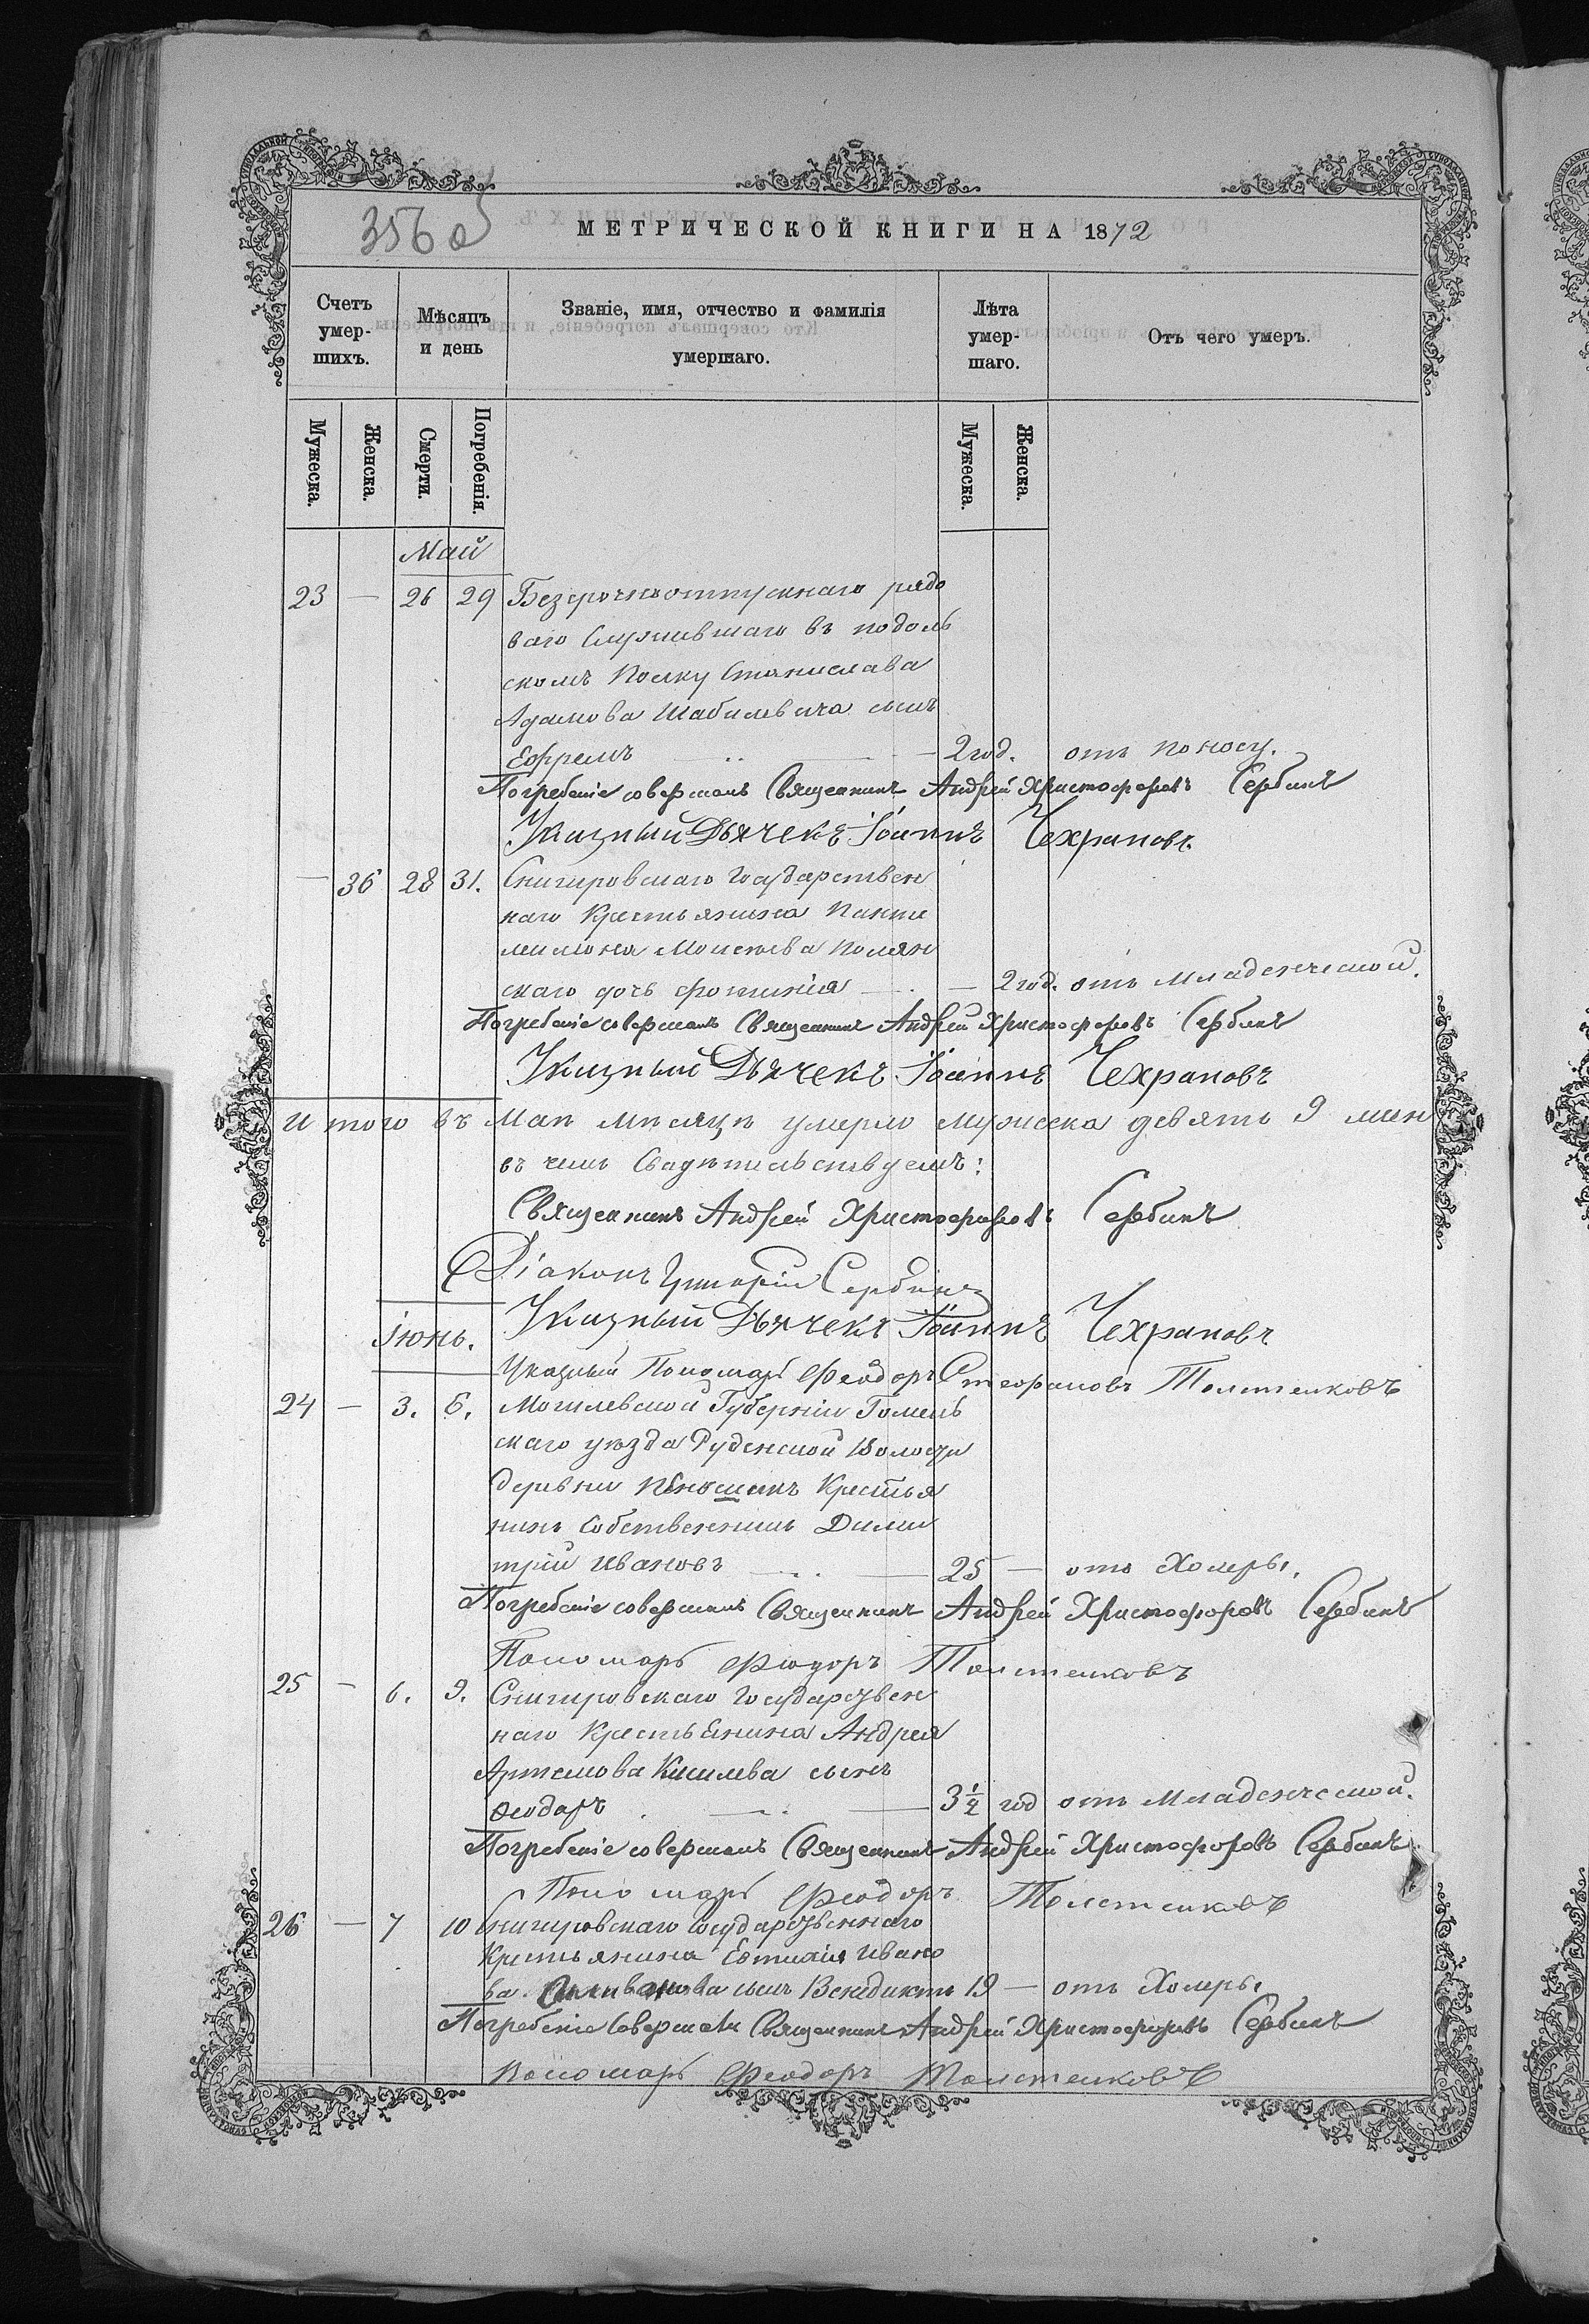 356 об
МЕТРИЧЕСКОЙ КНИГИ НА 1872
Счетъ умершихъ. Мѣсяцъ и день Званіе, имя, отчество и фамилія умершаго. Лѣта умершаго. Отъ чего умеръ.
Мужеска. Женска. Смерти. Погребенія. Мужеска. Женска.
Май
23 — 26 29 Безсрочноотпускнаго рядо
ваго Служившаго въ подоль
скомъ Полку Станислава
Адамова Шабилевича сынъ
Ефремъ — 2 год. отъ поносу.
Погребеніе совершалъ Священникъ Андрей Христофоровъ Сербинъ
Указный Дьячекъ Іоаннъ Чехрановъ
— 36 28 31. Снигировскаго Государствен
наго Крестьянина Панте
лимона Моисѣева Полян
скаго дочь Фотинія — — 2 год. отъ Младенческой.
Погребеніе совершалъ Священникъ Андрей Христофоровъ Сербинъ
Указный Дьячекъ Іоаннъ Чехрановъ
Итого въ Маѣ мѣсяцѣ умерло мужеска девять 9 жен
въ чемъ Свидѣтельствуемъ:
Священникъ Андрей Христофоровъ Сербинъ
Діаконъ Григорій Сербинъ
Указный Дьячекъ Іоаннъ Чехрановъ
Іюнь.
Указный Пономарь Феодоръ Стефановъ Толстенковъ
24 — 3. 6. Могилевской Губерніи Гомель
скаго уѣзда Руденской Волости
деревни Крестья
нинъ Собственникъ Дими
трій Ивановъ — 25 — отъ Холеры.
Погребеніе совершалъ Священникъ Андрей Христофоровъ Сербинъ
Пономарь Феодоръ Толстенковъ
25 — 6. 9. Снигировскаго Государствен
наго Крестьянина Андрея
Артемова Киселева сынъ
Ѳеодоръ — 3½ год отъ Младенческой.
Погребеніе совершалъ Священникъ Андрей Христофоровъ Сербинъ
Пономарь Феодоръ Толстенковъ
26 — 7 10 Снигировскаго Государственнаго
Крестьянина Евтихія Ивано
ва Селиванова сынъ Венедиктъ 19 — отъ Холеры
Погребеніе Совершалъ Священникъ Андрей Христофоровъ Сербинъ
Пономарь Феодоръ Толстенковъ